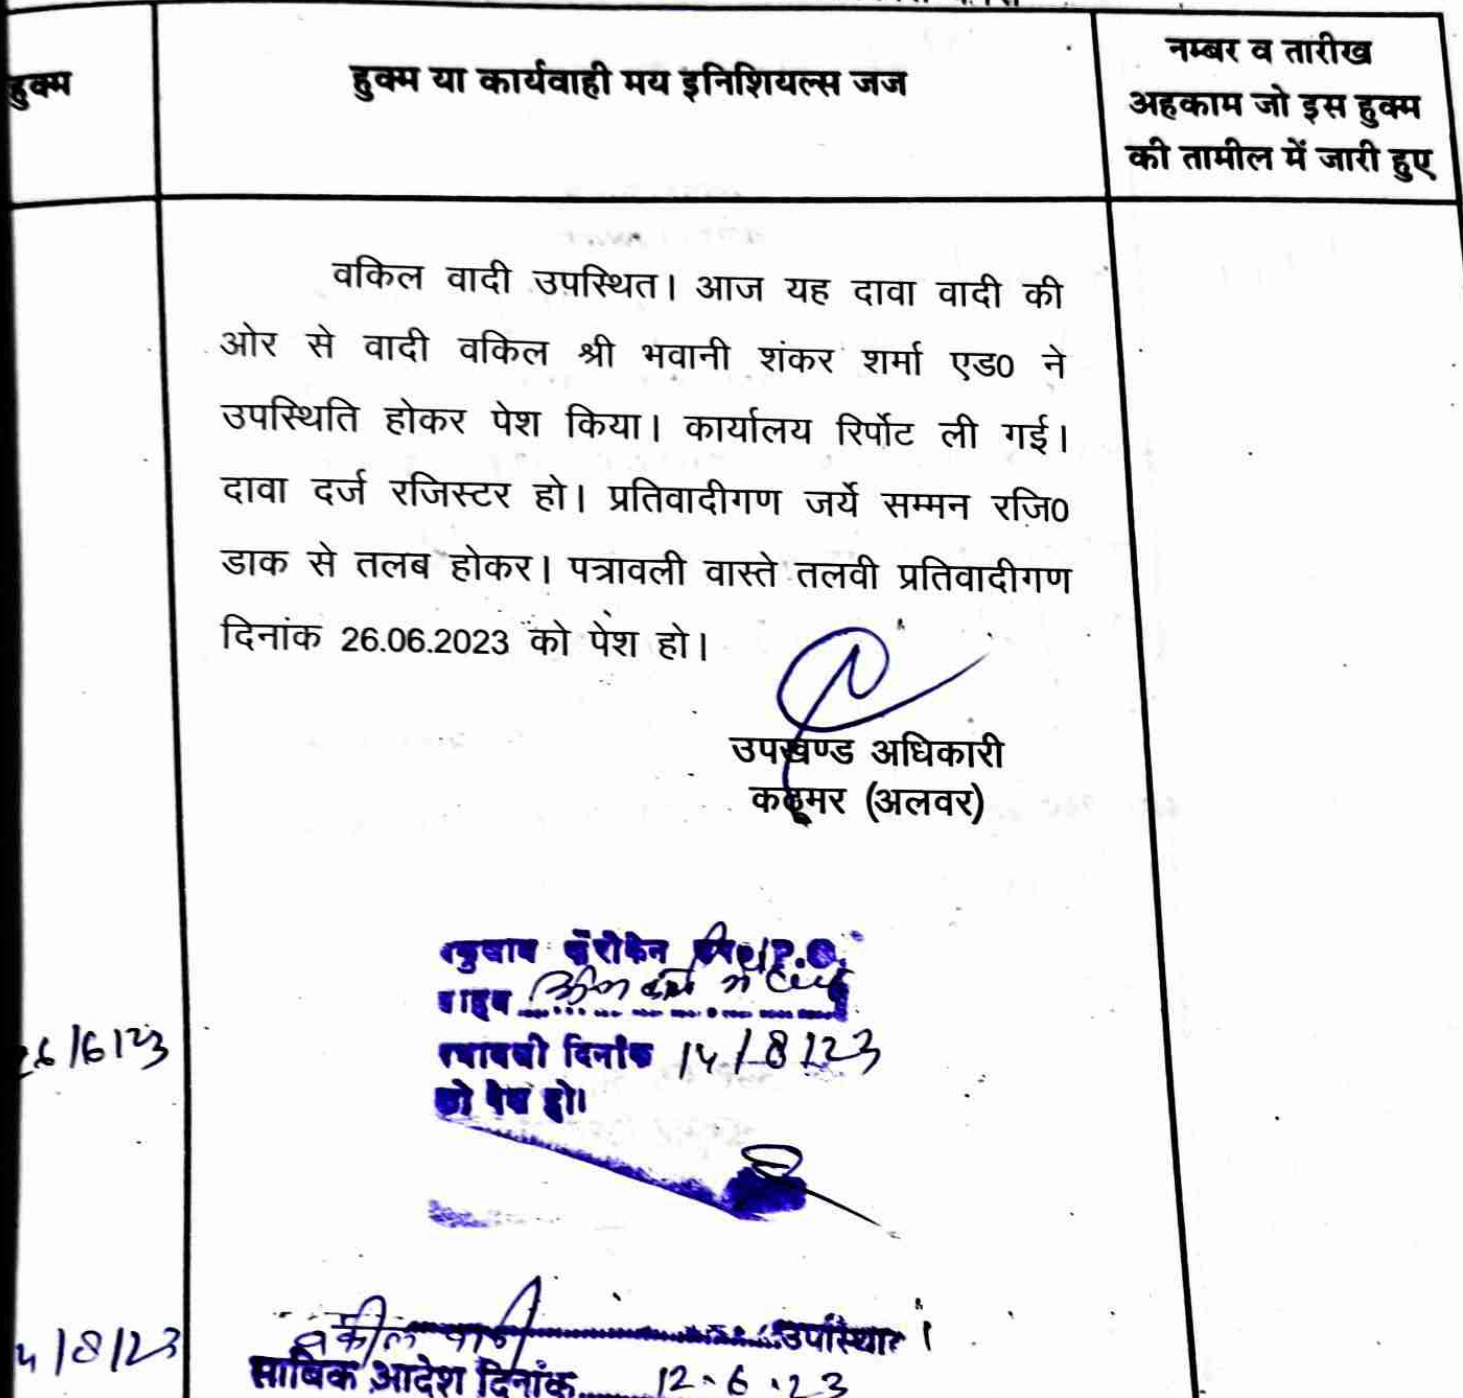 हुक्म
हुक्म या कार्यवाही मय इनिशियल्स जज
नम्बर व तारीख
अहकाम जो इस हुक्म
की तामील में जारी हुए
वकिल वादी उपस्थित। आज यह दावा वादी की
ओर से वादी वकिल श्री भवानी शंकर शर्मा एड0 ने
उपस्थिति होकर पेश किया। कार्यालय रिर्पोट ली गई।
दावा दर्ज रजिस्टर हो। प्रतिवादीगण जर्ये सम्मन रजि0
डाक से तलब होकर। पत्रावली वास्ते तलवी प्रतिवादीगण
दिनांक 26.06.2023 को पेश हो।
उपखण्ड अधिकारी
कठूमर (अलवर)
P.O.
26/6/23
दिनांक 14/8/23
को पेश हो।
14/8/23
वकील वादी उपस्थित।
साबिक आदेश दिनांक 12.6.23